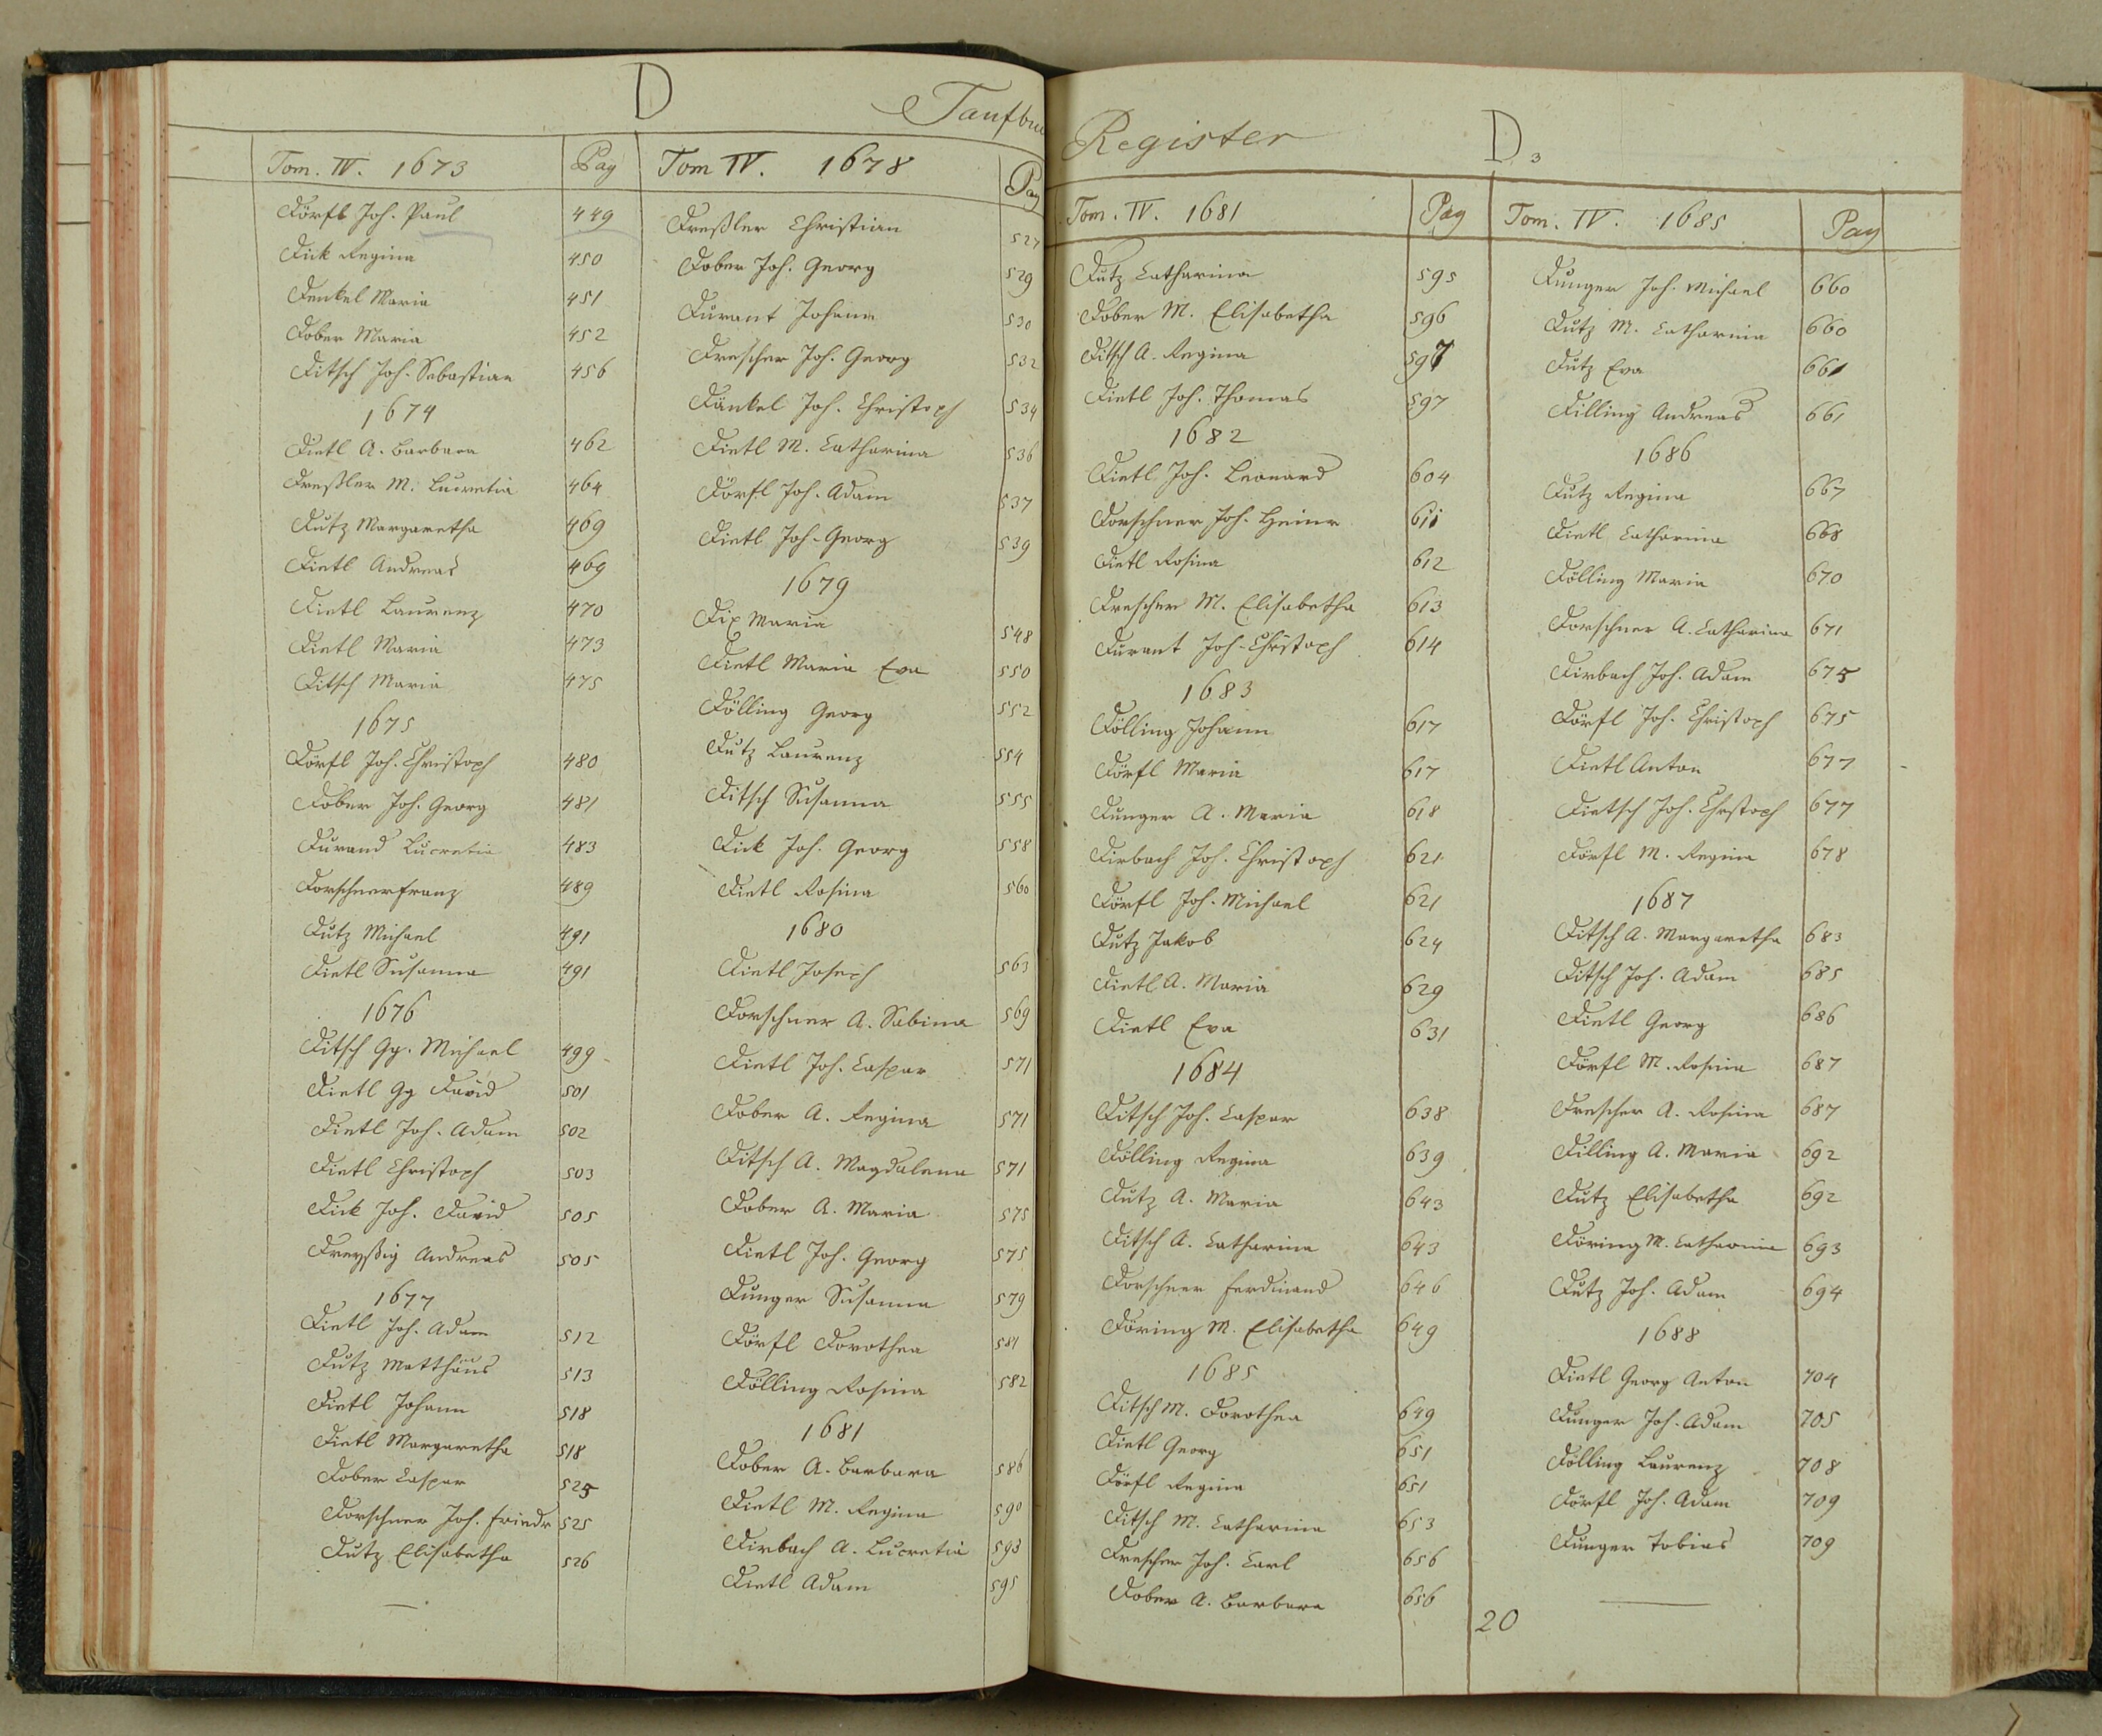 D
Taufbu
Tom. IV. 1673 Pag
Dörfl Joh. Paul 449
Dick Regina 450
Denkel Maria 451
Dober Maria 452
Ditsch Joh. Sebastian 456
1674
Dietl A. Barbara 462
Dreßler M. Lucretia 464
Dutz Margaretha 469
Dietl Andreas 469
Dietl Laurenz 470
Dietl Maria 473
Ditsch Maria 475
1675
Dörfl Joh. Christoph 480
Dober Joh. Georg 481
Durand Lucretia 483
Dorschner Franz 489
Dutz Michael 491
Dietl Susanna 491
1676
Ditsch Gg. Michael 499
Dietl Gg David 501
Dietl Joh. Adam 502
Dietl Christoph 503
Dick Joh. David 505
Dreyßig Andreas 505
1677
Dietl Joh. Adam 512
Dutz Matthäus 513
Dietl Johann 518
Dietl Margaretha 518
Dober Caspar 525
Dorschner Joh. Friedr 525
Dutz Elisabetha 526
Tom IV. 1678 Pag
Dreßler Christian 527
Dober Joh. Georg 529
Durant Johann 530
Drescher Joh. Georg 532
Dänkel Joh. Christoph 534
Dietl M. Catharina 536
Dörfl Joh. Adam 537
Dietl Joh. Georg 539
1679
Dix Maria 548
Dietl Maria Eva 550
Dölling Georg 552
Dutz Laurenz 554
Ditsch Susanna 555
Dick Joh. Georg 558
Dietl Rosina 560
1680
Dietl Joseph 563
Dorschner A. Sabina 569
Dietl Joh. Caspar 571
Dober A. Regina 571
Ditsch A. Magdalena 571
Dober A. Maria 575
Dietl Joh. Georg 575
Dunger Susanna 579
Dörfl Dorothea 581
Dölling Rosina 582
1681
Dober A. Barbara 586
Dietl M. Regina 590
Dirbach A. Lucretia 593
Dietl Adam 595
Register
D3
Tom. IV. 1681 Pag
Dutz Catharina 595
Dober M. Elisabetha 596
Ditsch A. Regina 597
Dietl Joh. Thomas 597
1682
Dietl Joh. Leonard 604
Dorschner Joh. Heinr 611
Dietl Rosina 612
Drescher M. Elisabetha 613
Durant Joh. Christoph 614
1683
Dölling Johann 617
Dörfl Maria 617
Dunger A. Maria 618
Dirbach Joh. Christoph 621
Dörfl Joh. Michael 621
Dutz Jakob 624
Dietl A. Maria 629
Dietl Eva 631
1684
Ditsch Joh. Caspar 638
Dölling Regina 639
Dutz A. Maria 643
Ditsch A. Catharina 643
Dorschner Ferdinand 646
Döring M. Elisabetha 649
1685
Ditsch M. Dorothea 649
Dietl Georg 651
Dörfl Regina 651
Ditsch M. Catharina 653
Drescher Joh. Carl 656
Dober A. Barbara 656
Tom. IV. 1685 Pag
Dunger Joh. Michael 660
Dutz M. Catharina 660
Dutz Eva 661
Dilling Andreas 661
1686
Dutz Regina 667
Dietl Catharina 668
Dölling Maria 670
Dorschner A. Catharina 671
Dirbach Joh. Adam 675
Dörfl Joh. Christoph 675
Dietl Anton 677
Dietsch Joh. Chrstoph 677
Dörfl M. Regina 678
1687
Ditsch A. Margaretha 683
Ditsch Joh. Adam 685
Dietl Georg 686
Dörfl M. Rosina 687
Drescher A. Rosina 687
Dilling A. Maria 692
Dutz Elisabetha 692
Döring M. Catharina 693
Dutz Joh. Adam 694
1688
Dietl Georg Anton 704
Dunger Joh. Adam 705
Dölling Laurenz 708
Dörfl Joh. Adam 709
Dunger Tobias 709
20